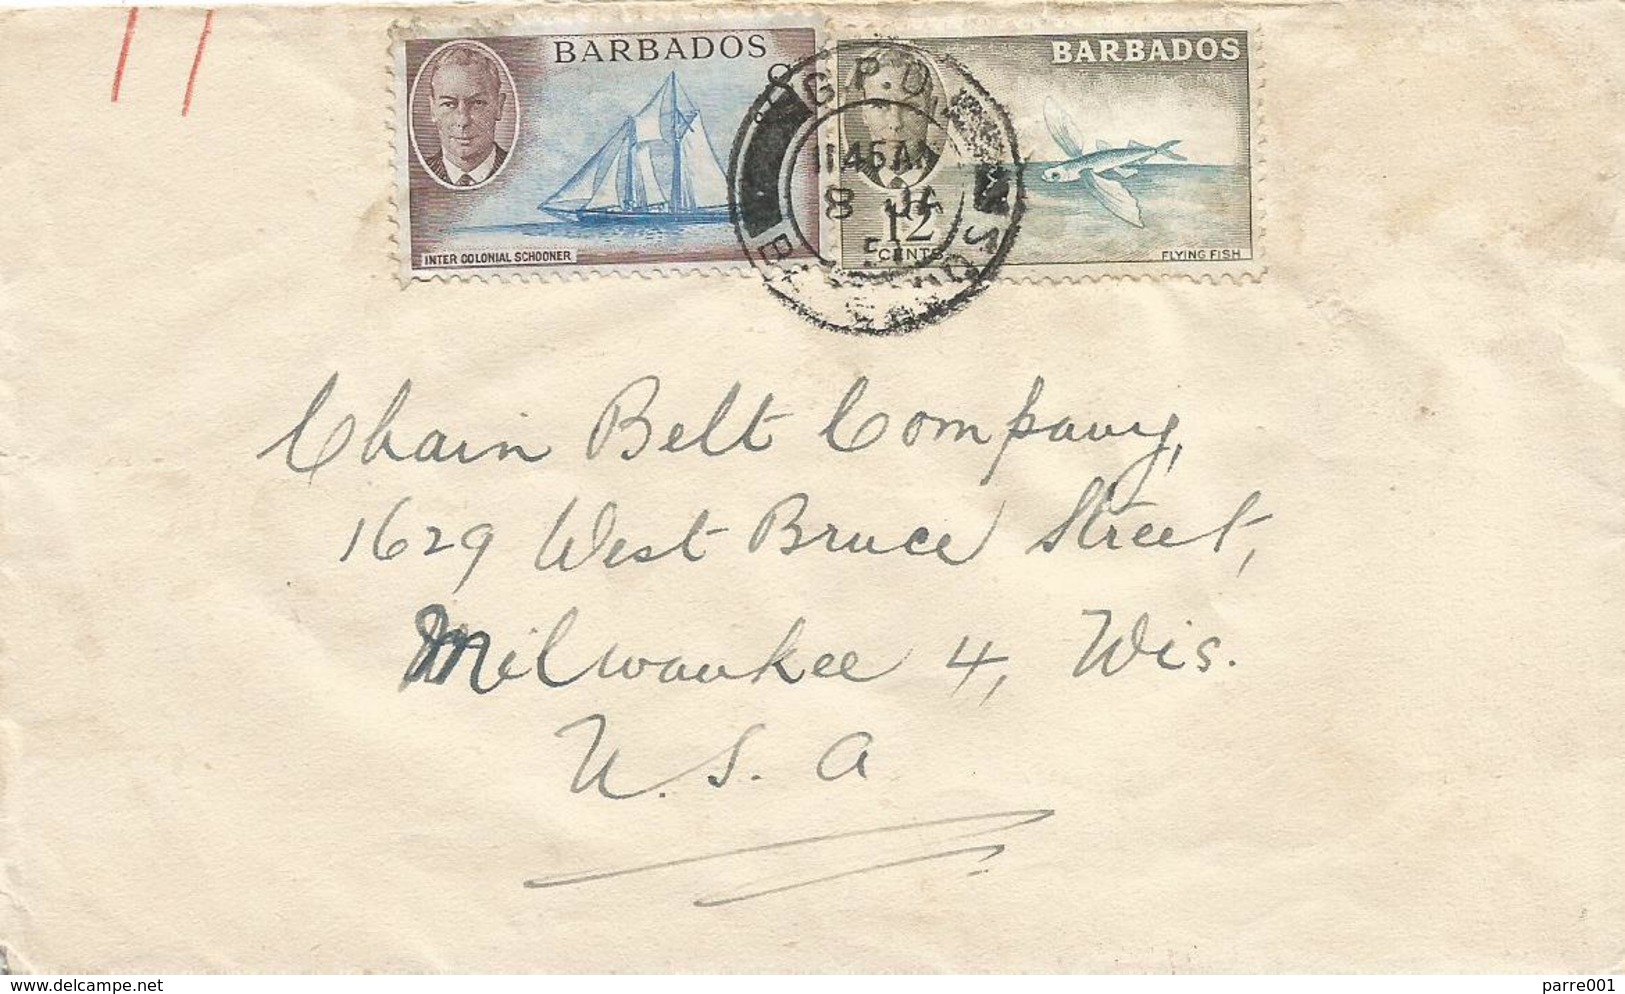 BARBADOS
8
INTER COLONIAL SCHOONER
BARBADOS
12
CENTS
FLYING FISH
G.P.O.
1145AM
8 JA
Chain Belt Company,
1629 West Bruce Street,
Milwaukee 4, Wis.
U.S.A
delcampe.net
parre001